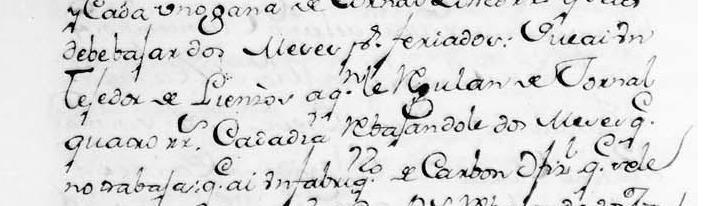 y Cada uno gana de Jornal Cinco rr.s y
debe bajar dos Meses p.r feriados: Que ai un
Tejedor de Lienzos a q.n le Regulan de Jornal
quatro rr.s Cada dia rebajandole dos Meses q.e
no trabaja: q.e ai un fabriq.ro de Carbon q.e
de